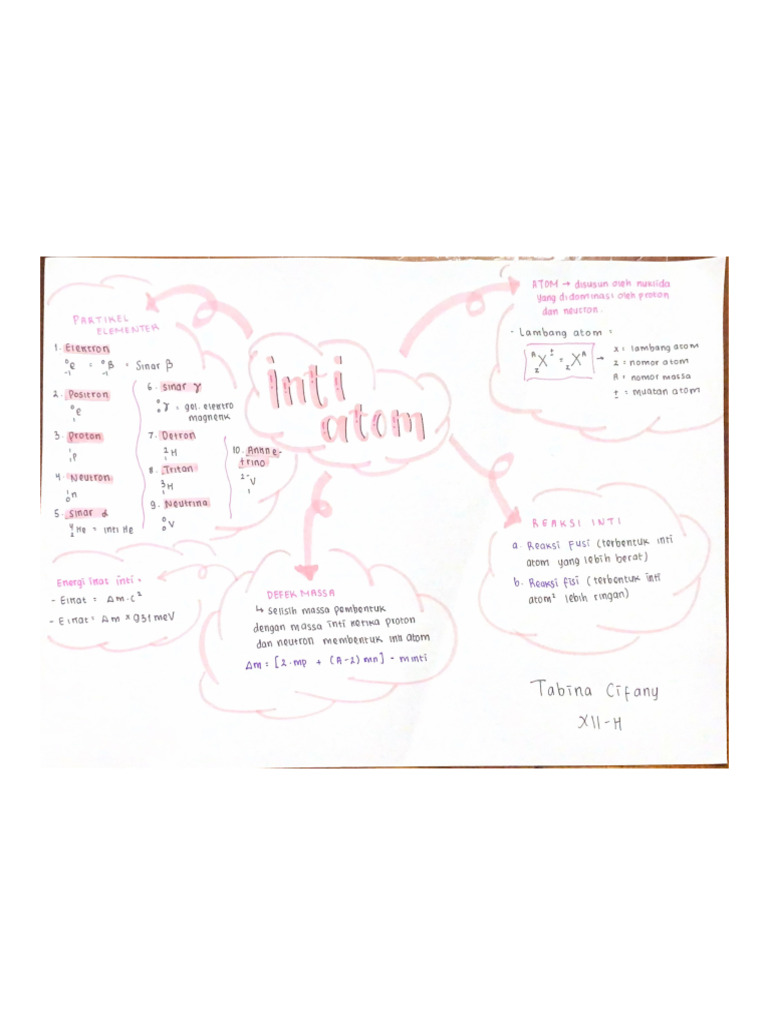 inti
atom
PARTIKEL
ELEMENTER
1. Elektron
⁰₋₁e = ⁰₋₁β = Sinar β
2. Positron
⁰₁e
3. Proton
¹₁p
4. Neutron
¹₀n
5. Sinar α
⁴₂He = inti He
6. Sinar γ
⁰₀γ = gel. elektro
magnetik
7. Detron
²₁H
8. Triton
³₁H
9. Neutrina
⁰₀V
10. Antine-
trino
V
ATOM → disusun oleh nuklida
yang didominasi oleh proton
dan neutron.
- Lambang atom =
ᴬ_zX^± = _zXᴬ →
X = lambang atom
z = nomor atom
A = nomor massa
± = muatan atom
REAKSI INTI
a. Reaksi Fusi (terbentuk inti
atom yang lebih berat)
b. Reaksi fisi (terbentuk inti
atom² lebih ringan)
DEFEK MASSA
↳ selisih massa pembentuk
dengan massa inti ketika proton
dan neutron membentuk inti atom
Δm = [z·mp + (A-z) mn] - minti
Energi ikat inti =
- Eikat = Δm·c²
- Eikat = Δm × 931 meV
Tabina Cifany
XII-H